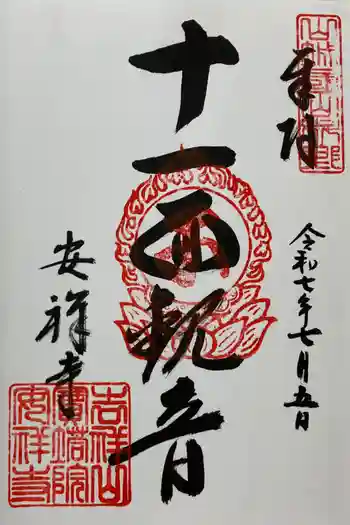 奉拝
令和七年七月五日
十一面観音
安祥寺
吉祥山
寶塔院
安祥寺